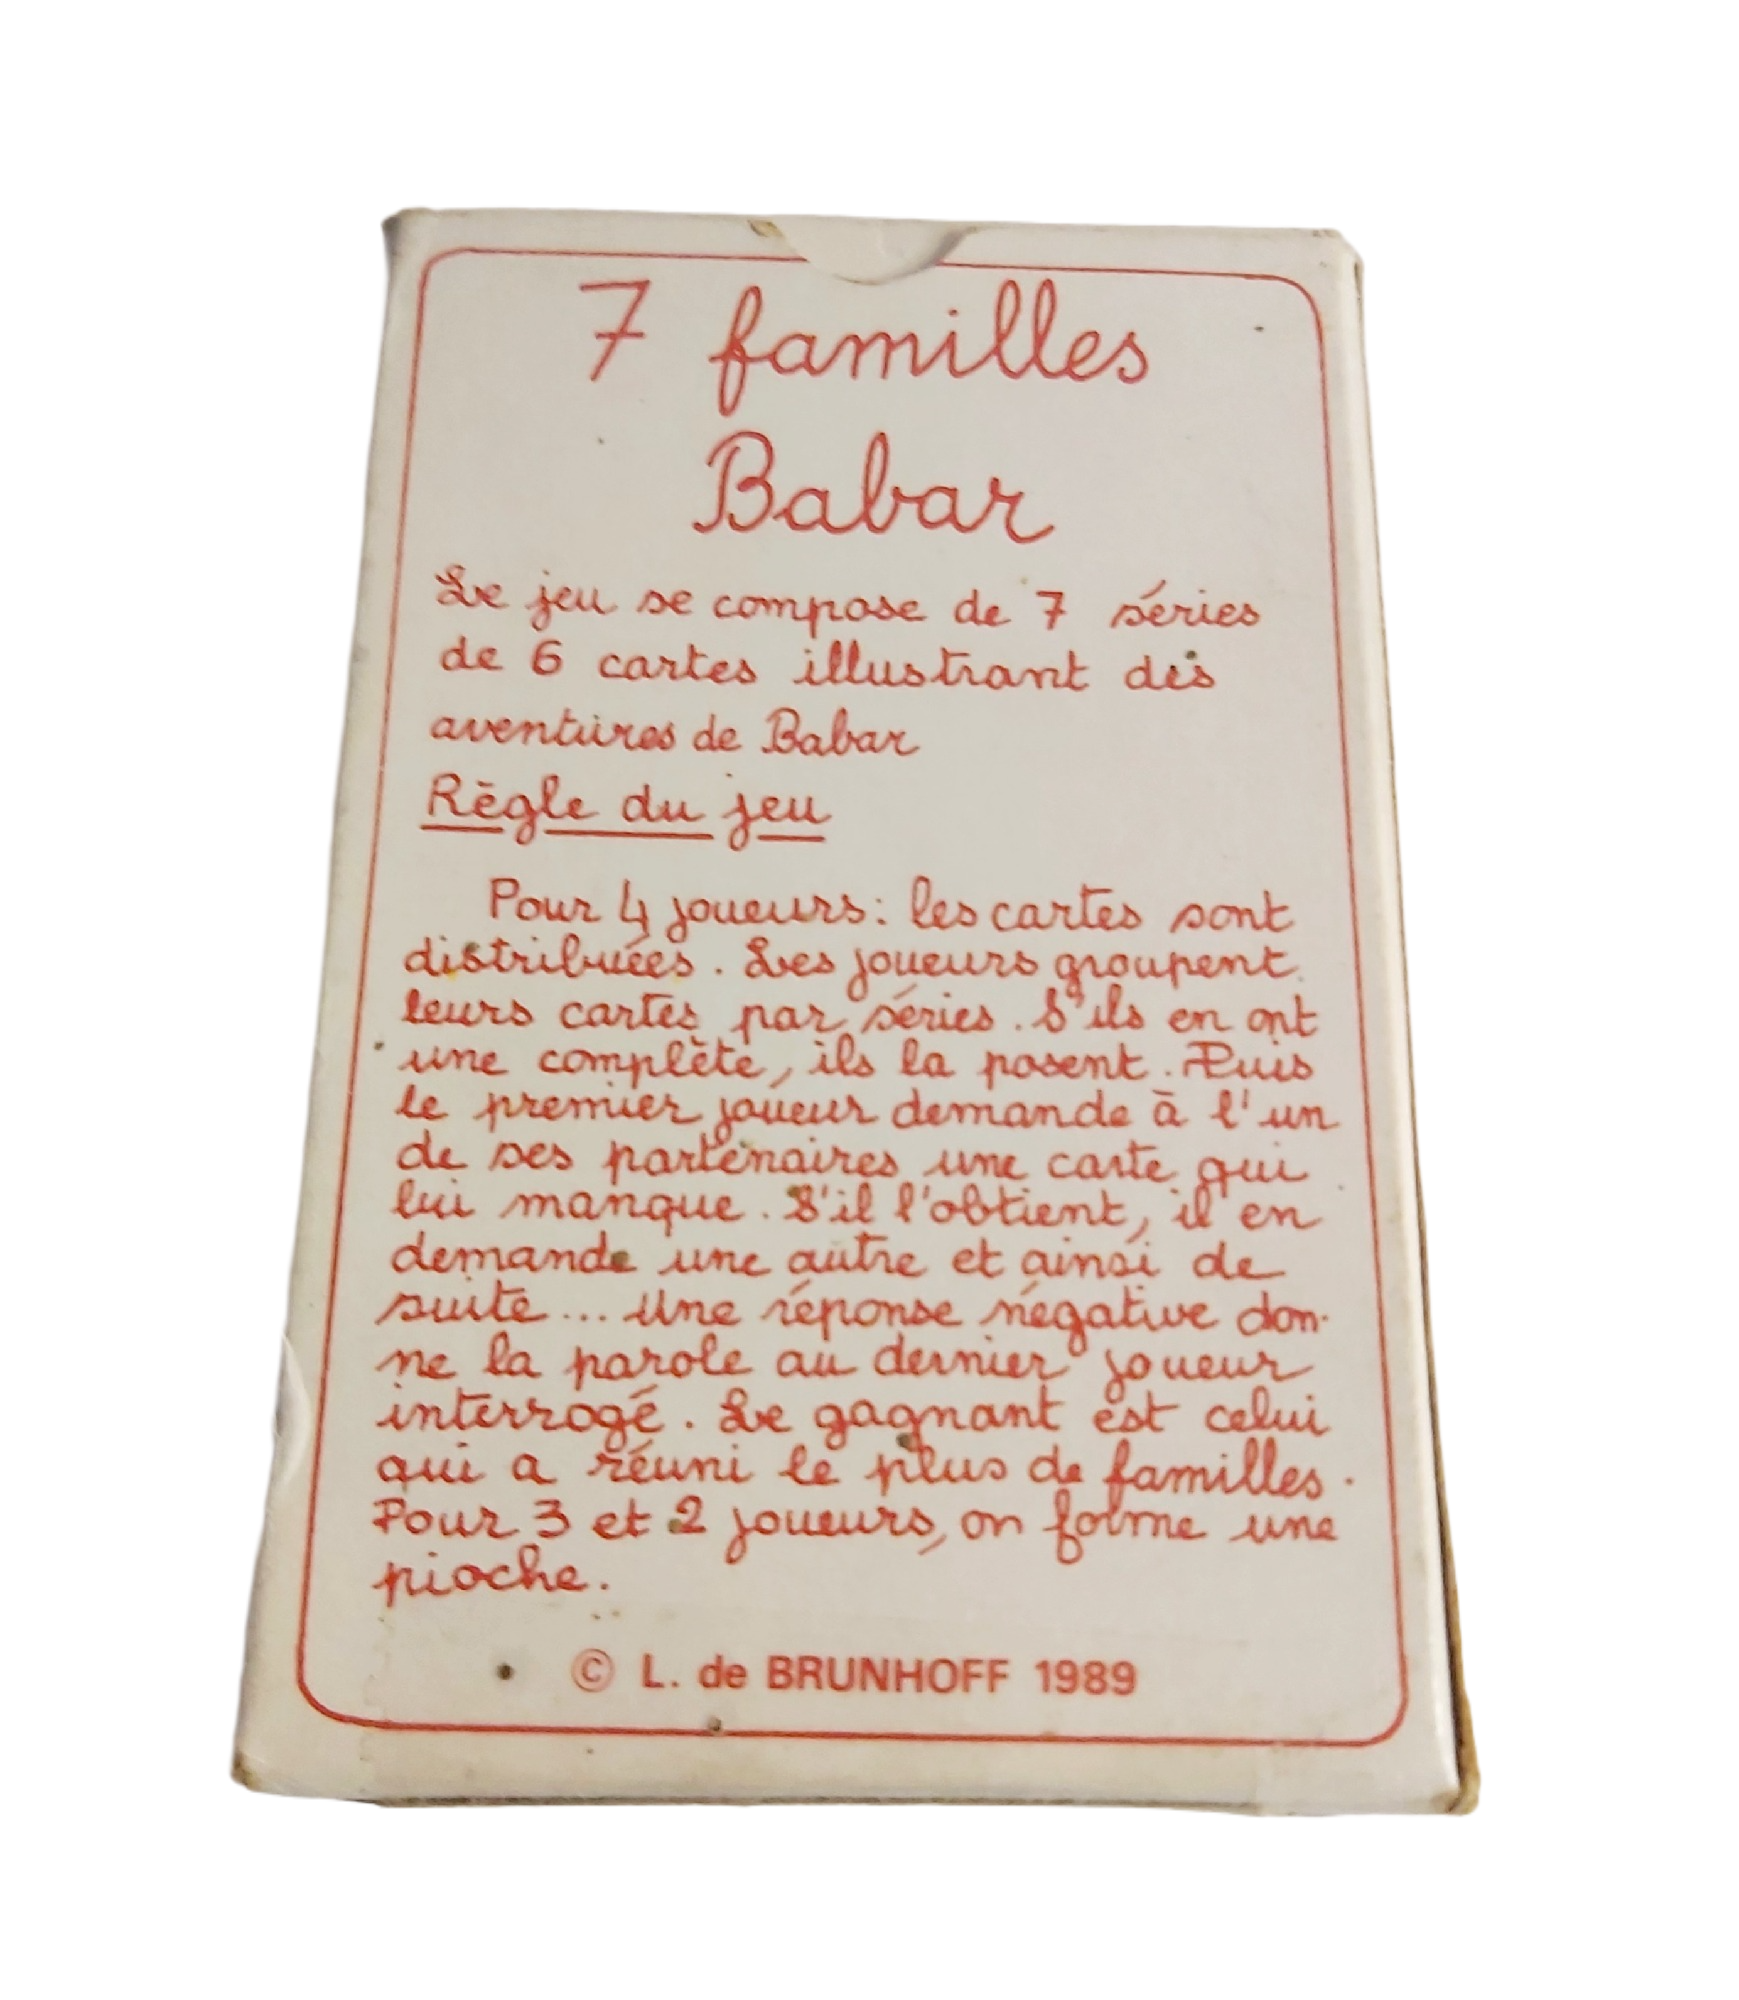 7 familles
Babar
Le jeu se compose de 7 séries
de 6 cartes illustrant des
aventures de Babar
Règle du jeu
Pour 4 joueurs : les cartes sont
distribuées. Les joueurs groupent
leurs cartes par séries. S'ils en ont
une complète, ils la posent. Puis
le premier joueur demande à l'un
de ses partenaires une carte qui
lui manque. S'il l'obtient, il en
demande une autre et ainsi de
suite... Une réponse négative don-
ne la parole au dernier joueur
interrogé. Le gagnant est celui
qui a réuni le plus de familles.
Pour 3 et 2 joueurs, on forme une
pioche.
© L. de BRUNHOFF 1989